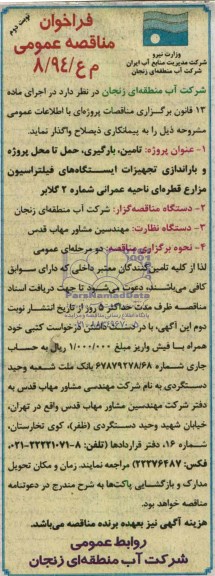 نوبت دوم
وزارت نیرو
شرکت مدیریت منابع آب ایران
شرکت آب منطقه‌ای زنجان
فراخوان
مناقصه عمومی
م ع/۸/۹۴
شرکت آب منطقه‌ای زنجان در نظر دارد در اجرای ماده
۱۳ قانون برگزاری مناقصات پروژه‌ای با اطلاعات عمومی
مشروحه ذیل را به پیمانکاری ذیصلاح واگذار نماید.
۱- عنوان پروژه: تامین، بارگیری، حمل تا محل پروژه
و باراندازی تجهیزات ایستگاههای فیلتراسیون
مزارع قطره‌ای ناحیه عمرانی شماره ۲ گلابر
۲- دستگاه مناقصه‌گزار: شرکت آب منطقه‌ای زنجان
۳- دستگاه نظارت: مهندسین مشاور مهاب قدس
۴- نحوه برگزاری مناقصه: دو مرحله‌ای عمومی
لذا از کلیه تامین‌کنندگان معتبر داخلی که دارای سوابق
کافی می‌باشند، دعوت می‌شود تا جهت دریافت اسناد
مناقصه ظرف مدت حداکثر ۵ روز از تاریخ انتشار نوبت
دوم این آگهی، با در درخواست کتبی خود
همراه با فیش واریز مبلغ ۱/۰۰۰/۰۰۰ ریال به حساب
جاری شماره ۶۷۸۷۹۲۷۸/۶۸ بانک ملت شعبه وحید
دستگردی به نام شرکت مهندسی مشاور مهاب قدس به
دفتر شرکت مهندسین مشاور مهاب قدس واقع در تهران،
خیابان شهید وحید دستگردی (ظفر)، کوی تخارستان،
شماره ۱۶، دفتر قراردادها (تلفن: ۸-۲۲۲۲۱۰۷۱-۰۲۱
فکس: ۲۲۲۷۶۴۸۷) مراجعه نمایند. زمان و مکان تحویل
مدارک و بازگشایی پاکت‌ها به شرح مندرج در دعوتنامه
مناقصه خواهد بود.
هزینه آگهی نیز بعهده برنده مناقصه می‌باشد.
روابط عمومی
شرکت آب منطقه‌ای زنجان